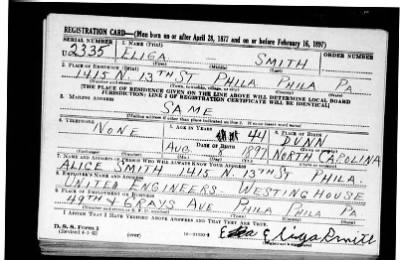 REGISTRATION CARD—(Men born on or after April 28, 1877 and on or before February 16, 1897)
SERIAL NUMBER 1. NAME (Print) ORDER NUMBER
U 2335 ELIGA SMITH
2. PLACE OF RESIDENCE (Print)
1415 N. 13TH ST PHILA PHILA PA
[THE PLACE OF RESIDENCE GIVEN ON THE LINE ABOVE WILL DETERMINE LOCAL BOARD
JURISDICTION; LINE 2 OF REGISTRATION CERTIFICATE WILL BE IDENTICAL]
3. MAILING ADDRESS
SAME
4. TELEPHONE 5. AGE IN YEARS 44 6. PLACE OF BIRTH
NONE DATE OF BIRTH DUNN
AUG 1897 NORTH CAROLINA
7. NAME AND ADDRESS OF PERSON WHO WILL ALWAYS KNOW YOUR ADDRESS
ALICE SMITH 1415 N. 13TH ST PHILA.
8. EMPLOYER'S NAME AND ADDRESS
UNITED ENGINEERS WESTINGHOUSE
9. PLACE OF EMPLOYMENT OR BUSINESS
49TH & GRAYS AVE PHILA PHILA PA
I AFFIRM THAT I HAVE VERIFIED ABOVE ANSWERS AND THAT THEY ARE TRUE.
D. S. S. Form 1
(Revised 4-1-42) (over) Eliga Smith